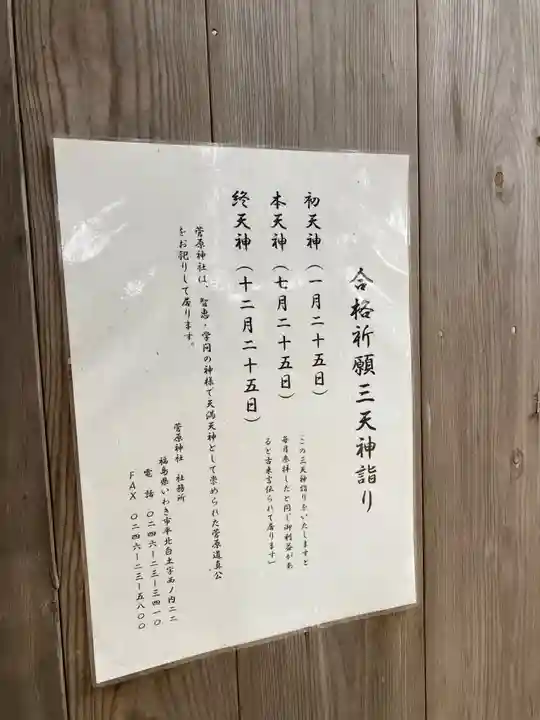 合格祈願三天神詣り
初天神(一月二十五日)
本天神(七月二十五日)
終天神(十二月二十五日)
「この三天神詣りをいたしますと
毎月参拝したと同じ御利益があ
ると古来言伝られて居ります」
菅原神社は、智恵・学問の神様で天満天神として崇められた菅原道真公
をお祀りして居ります。
菅原神社 社務所
福島県いわき市平北白土字西ノ内二二
電話 〇二四六ー二三ー三四一〇
FAX 〇二四六ー二三ー五八〇〇